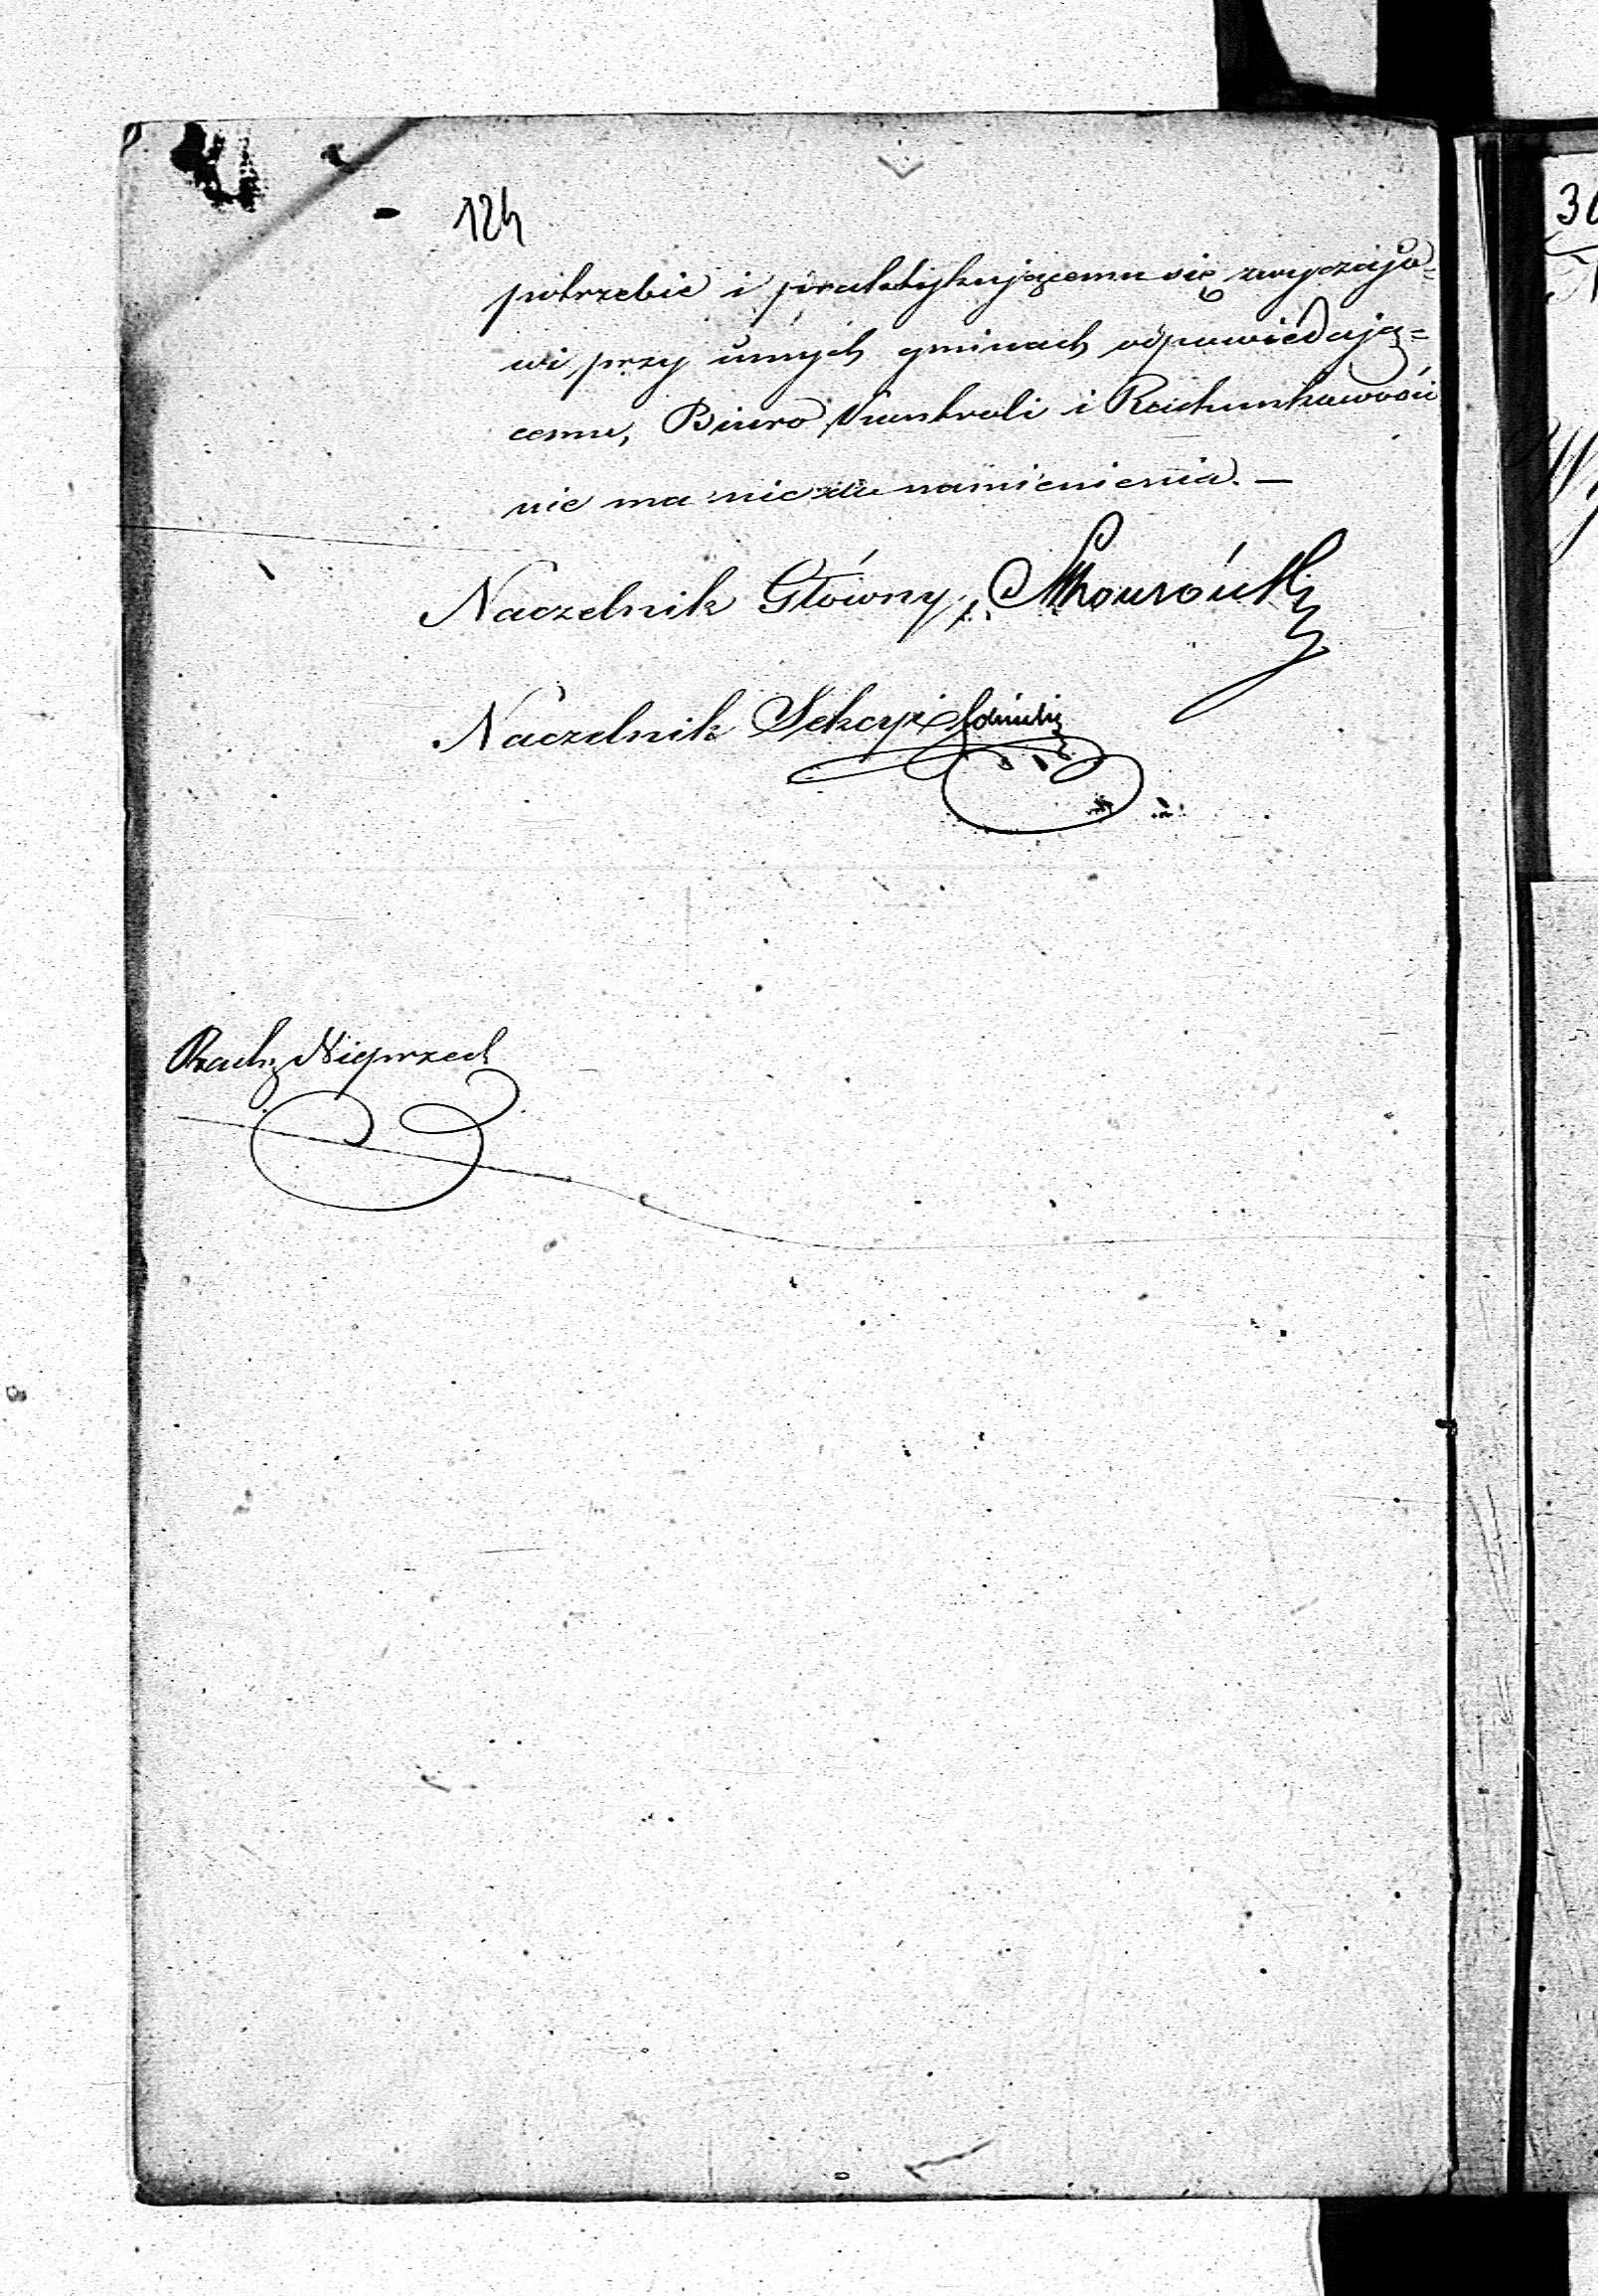 124
potrzebie i praktykującemu się zwyczajo=
wi, przy innych gminach odpowiedają=
cemu, Biuro Kontroli i Rachunkowości
nie ma nic do namienienia. —
Naczelnik Główny,
Naczelnik Sekcyi
Rach: